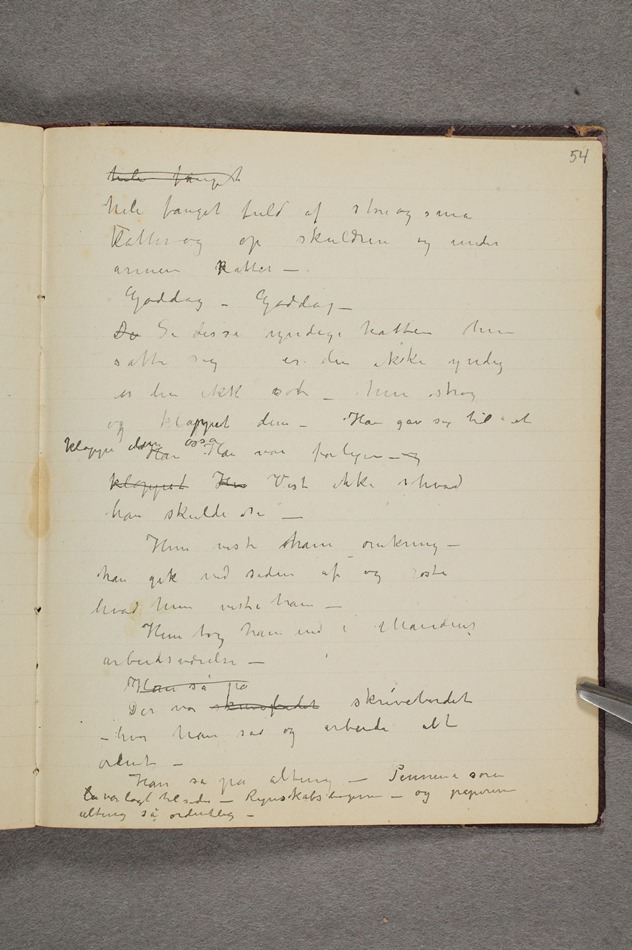 54
hele fanget
hele fanget fuld af store og sma
Katter og op skuldren og under
armen Katter —
Goddag – Goddag –
Du Se disse yndige katten hun
satte sig er den ikke yndig
er den ikk søt – hun strog
og klappet den – Han gav sig til at
klappe den ossa
Han Han var forlegen – og
klappet Hun Vist ikke hvad
han skulde si —
Hun viste ham omkring –
han gik ved siden af og roste
hvad hun viste ham –
Hun tog ham ind i Mandens
arbeidsværelse –
Han så på
Der var skrivebordet
– hvor han sad og arbeide alt
ordent –
Han sa på alting – Pennene som
var lagt tilside – Regnskabsbøgerne – og papirene
alting så ordentlig –